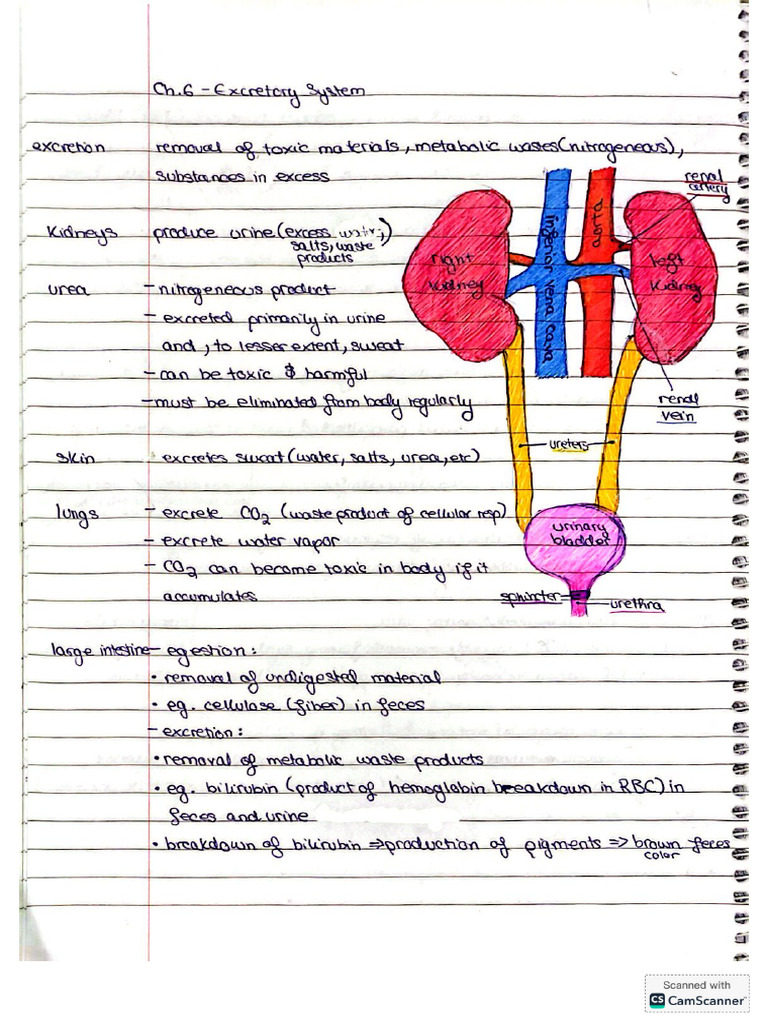 Ch.6 - Excretory System
excretion removal of toxic materials, metabolic wastes (nitrogeneous),
substances in excess
renal artery
Kidneys produce urine (excess water,
salts, waste
products)
aorta
inferior vena cava
right kidney
left kidney
urea - nitrogeneous product
- excreted primarily in urine
and, to lesser extent, sweat
- can be toxic & harmful
- must be eliminated from body regularly
renal vein
ureters
skin excretes sweat (water, salts, urea, etc)
lungs - excrete CO2 (waste product of cellular resp)
- excrete water vapor
- CO2 can become toxic in body if it
accumulates
urinary bladder
sphincter
urethra
large intestine - egestion:
• removal of undigested material
• eg. cellulase (fiber) in feces
- excretion:
• removal of metabolic waste products
• eg. bilirubin (product of hemoglobin breakdown in RBC) in
feces and urine
• breakdown of bilirubin => production of pigments => brown feces
color
Scanned with
CS CamScanner